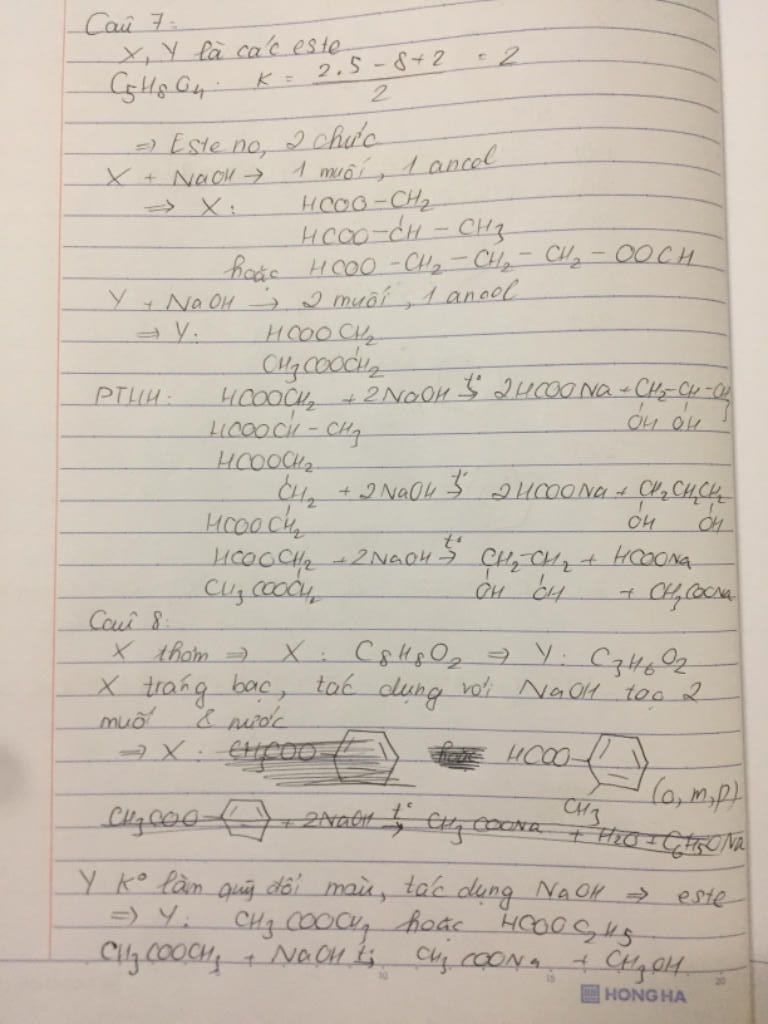 Câu 7:
X, Y là các este
C5H8O4: K = (2.5 - 8 + 2)/2 = 2
=> Este no, 2 chức
X + NaOH → 1 muối, 1 ancol
=> X: HCOO-CH2
HCOO-CH-CH3
hoặc HCOO-CH2-CH2-CH2-OOCH
Y + NaOH → 2 muối, 1 ancol
=> Y: HCOOCH2
CH3COOCH2
PTHH: HCOOCH2 + 2NaOH t° → 2HCOONa + CH2-CH-CH3
HCOOCH-CH3 OH OH
HCOOCH2
CH2 + 2NaOH t° → 2HCOONa + CH2CH2CH2
HCOOCH2 OH OH
HCOOCH2 + 2NaOH t° → CH2-CH2 + HCOONa
CH3COOCH2 OH OH + CH3COONa
Câu 8:
X thơm => X: C8H8O2 => Y: C3H6O2
X tráng bạc, tác dụng với NaOH tạo 2
muối & nước
=> X: CH3COO- hoặc HCOO-
CH3 (o, m, p)
CH3COO- + 2NaOH t° → CH3COONa + H2O + C6H5ONa
Y K° làm quỳ đổi màu, tác dụng NaOH => este
=> Y: CH3COOCH3 hoặc HCOOC2H5
CH3COOCH3 + NaOH t° → CH3COONa + CH3OH
10 15 20
HONG HA